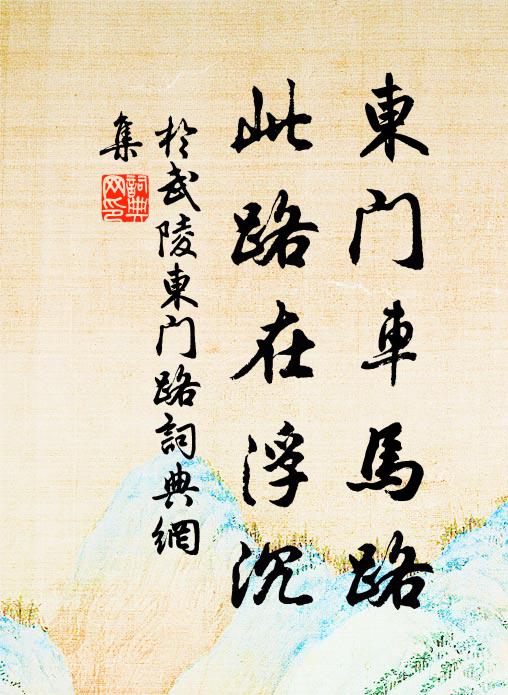 東門車馬路
此路在浮沉
於武陵東門路詞典網
集
詞典
网印